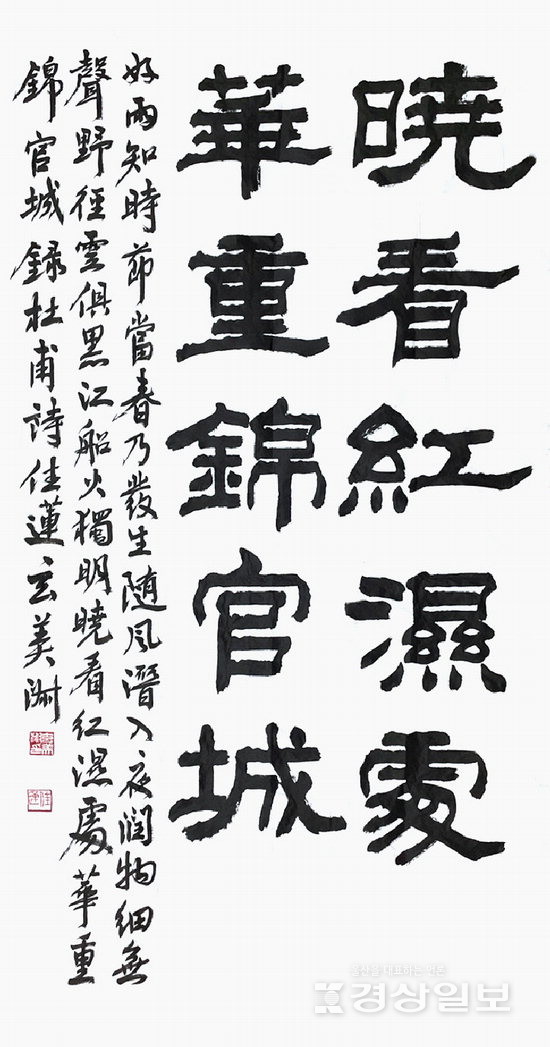 曉看紅濕處
華重錦官城
好雨知時節當春乃發生随風潛入夜潤物細無
聲野徑雲俱黑江船火獨明曉看紅濕處華重
錦官城錄杜甫詩佳蓮玄美淑
울산을 대표하는 신문
경상일보